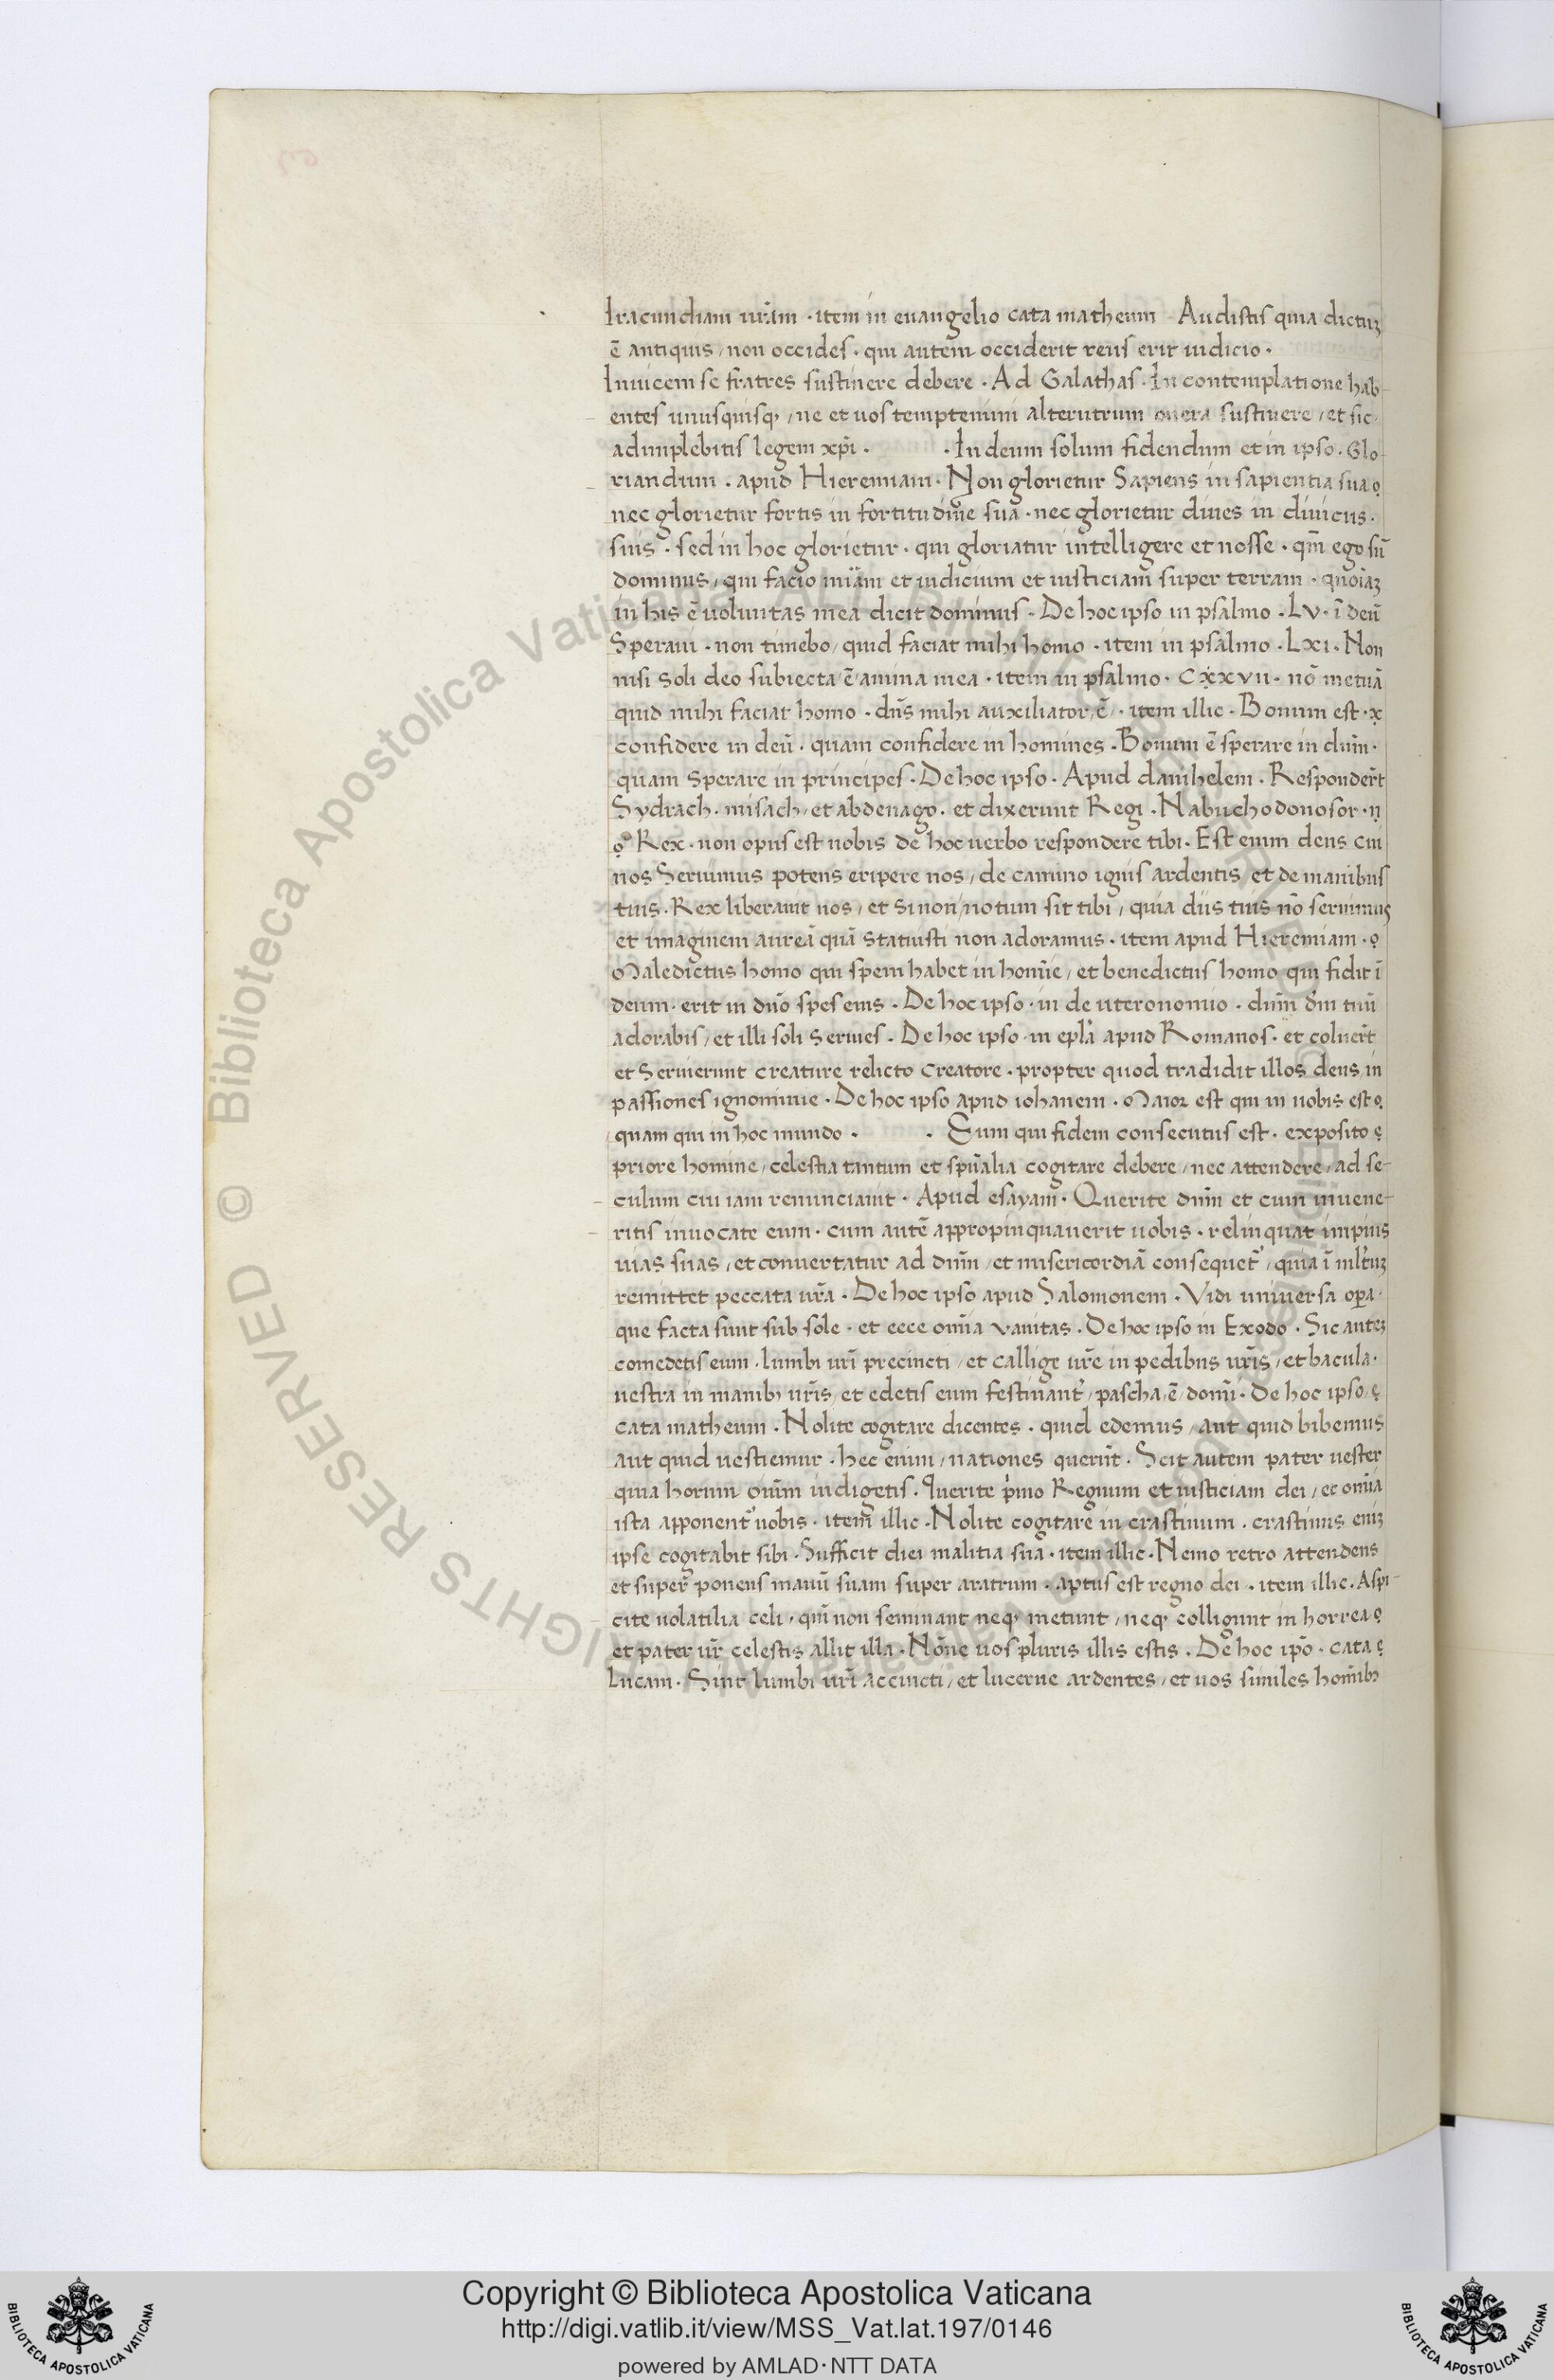 Iracundiam ur̃am · item in euangelio cata matheum Audistis quia dictuꝫ
ē antiquis / non occides · qui autem occiderit reus erit iudicio ·
Inuicem se fratres sustinere debere · Ad Galathas · In contemplatione hab-
entes unusquisqꝫ / ne et uos temptemini alterutrum onera sustinere / et sic
adimplebitis legem xp̄i · · In deum solum fidendum et in ipso · Glo-
riandum · apud Hieremiam · Non glorietur Sapiens in sapientia sua
nec glorietur fortis in fortitudine sua · nec glorietur diues in diuicus ·
suis · sed in hoc glorietur · qui gloriatur intelligere et nosse · qm̄ ego sū
dominus / qui facio mīam et iudicium et iusticiam super terram · quoiaꝫ
in his ē uoluntas mea dicit dominus · De hoc ipso in psalmo · Lv · ī deū
Speraui · non timebo / quid faciat mihi homo · item in psalmo · Lxi · Non
nisi soli deo subiecta / ē / anima mea · item in psalmo · Cxxvii · nō metuā
quid mihi faciat homo · dn̄s mihi auxiliator / ē / · item illic · Bonum est ·
confidere in deū · quam confidere in homines · Bonum ē sperare in dnm̄ ·
quam Sperare in principes · De hoc ipso · Apud danihelem · Responder̄t
Sydrach · misach / et abdenago · et dixerunt Regi · Nabuchodonosor ·
o Rex · non opus est nobis de hoc uerbo respondere tibi · Est enim deus cui
nos Seruimus potens eripere nos / de camino ignis ardentis et de manibus
tuis · Rex liberauit nos / et si non / notum sit tibi / quia diis tuis nō seruimus
et imaginem aureā quā statiusti non adoramus · item apud Hieremiam ·
Maledictus homo qui spem habet in homīe / et benedictus homo qui fidit ī
deum · erit in dnō spes eius · De hoc ipso · in deuteronomio · dnm̄ dm̄ tuū
adorabis / et illi soli Seruies · De hoc ipso · in epl̄a apud Romanos · et coluer̄t
et Seruierunt creature relicto Creatore · propter quod tradidit illos deus in
passiones ignominie · De hoc ipso apud iohanem · Maior est qui in uobis est
quam qui in hoc mundo · · Eum qui fidem consecutus est · exposito
priore homine / celestia tantum et spūalia cogitare debere / nec attendere / ad se-
culum cui iam renunciauit · Apud esayam · Querite dnm̄ et cum inuene-
ritis inuocate eum · cum autē appropinquauerit uobis · relinquat impius
uias suas / et conuertatur ad dnm̄ / et misericordiā consequet᷑ / quia ī ml̄tuꝫ
remittet peccata ur̄a · De hoc ipso apud Salomonem · Vidi uniuersa oꝑa ·
que facta sunt sub sole · et ecce omīa vanitas · De hoc ipso in Exodo · Sic auteꝫ
comedetis eum · lumbi ur̄i precincti / et callige ur̄e in pedibus ur̄is / et bacula ·
uestra in manibꝫ ur̄is / et edetis eum festinant᷑ / pascha / ē / domī · De hoc ipso /
cata matheum · Nolite cogitare dicentes · quid edemus / aut quid bibemus
aut quid uestiemur · hec enim / nationes querūt · Scit autem pater uester
quia horum oīum indigetis · Querite pͥmo Regnum et iusticiam dei / et omīa
ista apponent᷑ uobis · item illic · Nolite cogitare in crastinum · crastinus eniꝫ
ipse cogitabit sibi · Sufficit diei malitia sua · item illic · Nemo retro attendens
et super ponens manū suam super aratrum · aptus est regno dei · item illic · Aspi-
cite uolatilia celi · qm̄ non seminant neqꝫ metunt / neqꝫ colligunt in horrea
et pater ur̄ celestis allit illa · Nōne uos pluris illis estis · De hoc ip̄o · cata
Lucam · Sint lumbi ur̄i accincti / et lucerne ardentes / et uos similes homībꝫ
© Biblioteca Apostolica Vaticana ALL RIGHTS RESERVED
Copyright © Biblioteca Apostolica Vaticana
http://digi.vatlib.it/view/MSS_Vat.lat.197/0146
powered by AMLAD·NTT DATA
BIBLIOTECA APOSTOLICA VATICANA
BIBLIOTECA APOSTOLICA VATICANA